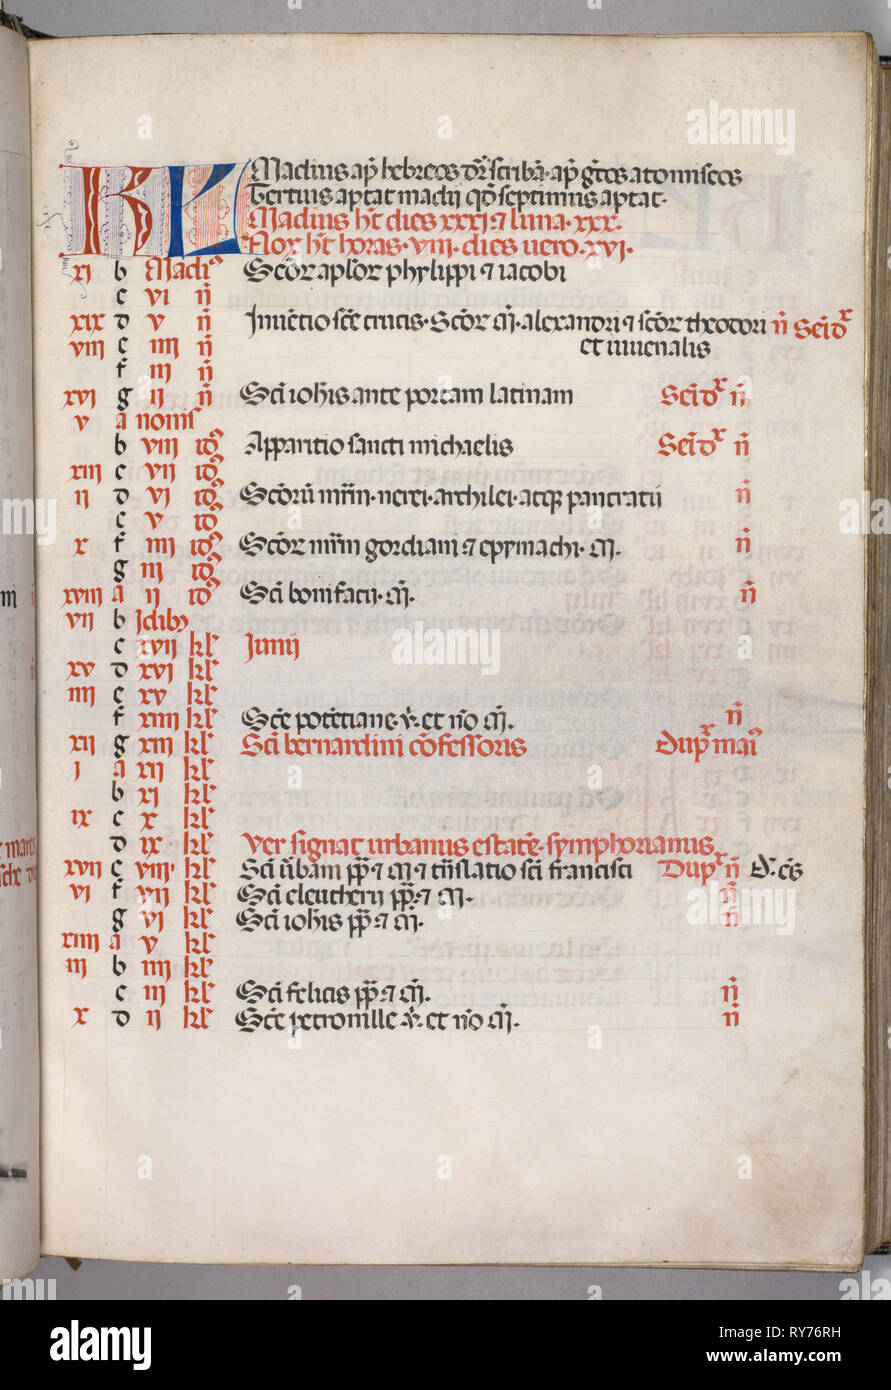 KL Madius ap̄ hebreos dr̄ scribā · ap̄ gr̄cos atomiseos
Tertius aptat madij qd̄ septimus aptat ·
Madius ht̄ dies xxxi ⁊ luna · xxx ·
Nox ht̄ horas · viii · dies uero · xvi ·
xi b Madiꝰ Sc̄oꝝ aplōꝝ phylippi ⁊ iacobi
c vi n̄
xix d v n̄ Inuētio scē crucis · Sc̄oꝝ m̄. alexandri ⁊ sc̄oꝝ theodori n̄ Semdx
viii e iiii n̄ et iuuenalis
f iii n̄
xvi g ii n̄ Sc̄i ioh̄is ante portam latinam Semdx n̄
v a nonis
b viii idꝰ Apparitio sancti michaelis Semdx n̄
xiii c vii idꝰ
ii d vi idꝰ Sc̄orū mr̄m · nerei · archilei · atqꝫ pancratii n̄
e v idꝰ
x f iiii idꝰ Sc̄oꝝ mr̄m gordiani ⁊ epymachi · m̄. n̄
g iii idꝰ
xviii a ii idꝰ Sc̄i bonifacii · m̄. n̄
vii b Idibꝫ
c xvii kl̄ Junij
xv d xvi kl̄
iiii e xv kl̄
f xiiii kl̄ Scē potētiane · v̄. et nō m̄. n̄
xii g xiii kl̄ Sc̄i bernardini cōfessoris Dupx maiꝰ
i a xii kl̄
b xi kl̄
ix c x kl̄
d ix kl̄ Ver signat urbanus estatē · symphorianus
xvii e viii · kl̄ Sc̄i ūbam pp̄ ⁊ m̄ ⁊ trāslatio sc̄i francisci Dupx n̄
vi f vii kl̄ Sc̄i eleutherij pp̄ · ⁊ m̄. n̄
g vi kl̄ Sc̄i ioh̄is pp̄ ⁊ m̄. n̄
xiiii a v kl̄
iii b iiii kl̄
c iii kl̄ Sc̄i felicis pp̄ · ⁊ m̄. n̄
x d ii kl̄ Scē petronille v̄. et nō m̄. n̄
alamy
Image ID: RY76RH
www.alamy.com